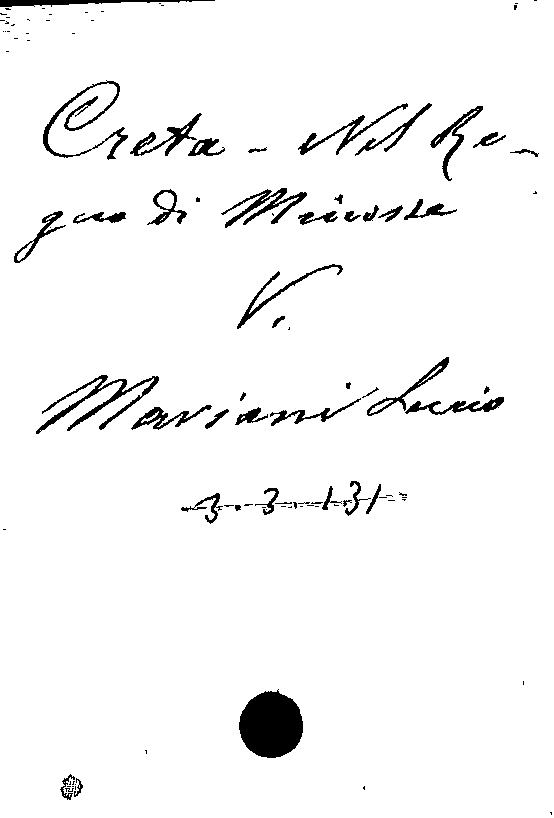 Creta - Nel Re-
gno di Minosse
V.
Mariani Lucio
3.3.131